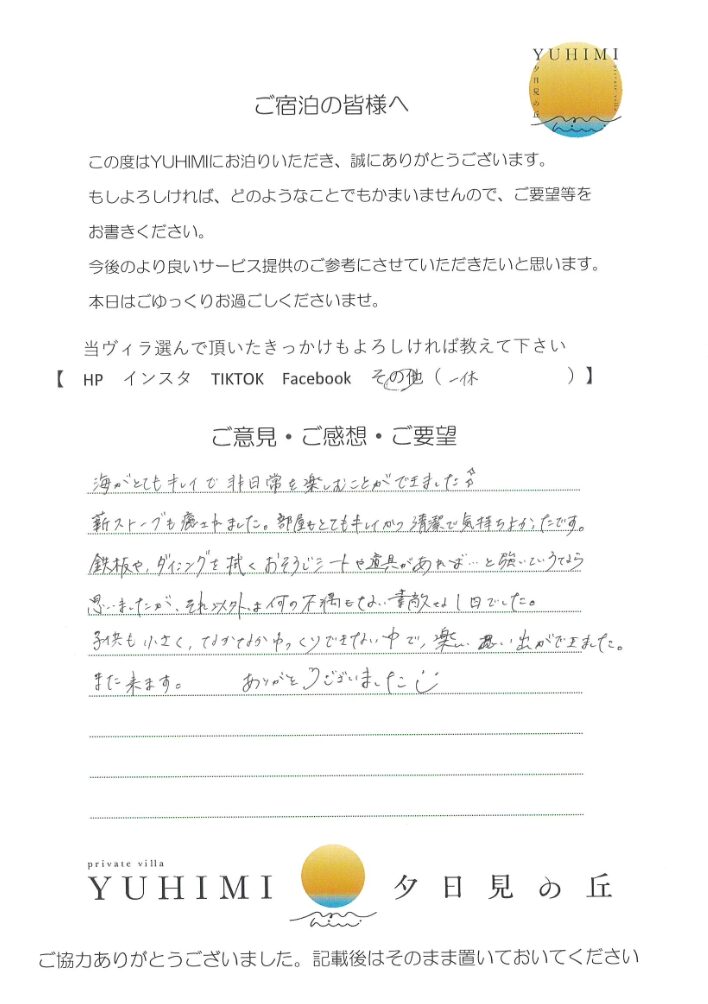 YUHIMI
夕日見の丘
private villa
ご宿泊の皆様へ
この度はYUHIMIにお泊りいただき、誠にありがとうございます。
もしよろしければ、どのようなことでもかまいませんので、ご要望等を
お書きください。
今後のより良いサービス提供のご参考にさせていただきたいと思います。
本日はごゆっくりお過ごしくださいませ。
当ヴィラ選んで頂いたきっかけもよろしければ教えて下さい
【 HP インスタ TIKTOK Facebook その他（ 一休 ）】
ご意見・ご感想・ご要望
海がとてもキレイで非日常を楽しむことができました
薪ストーブも癒されました。部屋もとてもキレイかつ清潔で気持ちよかったです。
鉄板や、ダイニングを拭くおそうじシートや道具があれば…と強いていうなら
思いましたが、それ以外は何の不満もない素敵な1日でした。
子供も小さく、なかなかゆっくりできない中で、楽しい思い出ができました。
また来ます。 ありがとうございました
private villa
YUHIMI 夕日見の丘
ご協力ありがとうございました。記載後はそのまま置いておいてください